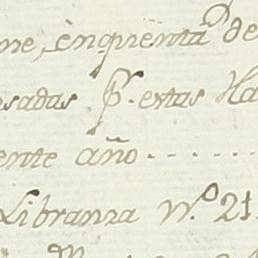 ne, ènquenta de
sadas p.r estas Ha
ente año......
Libranza N.o 21